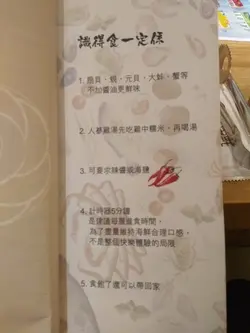 識得食一定係
1. 扇貝、蜆、元貝、大蚌、蟹等
不加醬油更鮮味
2. 人參雞湯先吃雞中糯米，再喝湯
3. 可要求辣醬或海鹽
4. 計時器5分鐘
是建議每最進食時間，
為了盡量維持海鮮合理口感，
不是整個快樂體驗的局限
5. 食飽了還可以帶回家